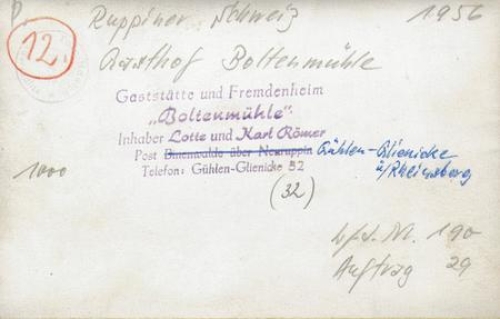 P.
Ruppiner Schweiz 1956
12.
Gasthof Boltenmühle
Gaststätte und Fremdenheim
„Boltenmühle"
Inhaber Lotte und Karl Römer
Post Binenwalde über Neuruppin Gühlen-Glienicke
ü/Rheinsberg
Telefon: Gühlen-Glienicke 52
1000
(32)
Lfd. Nr. 190
Auftrag 29